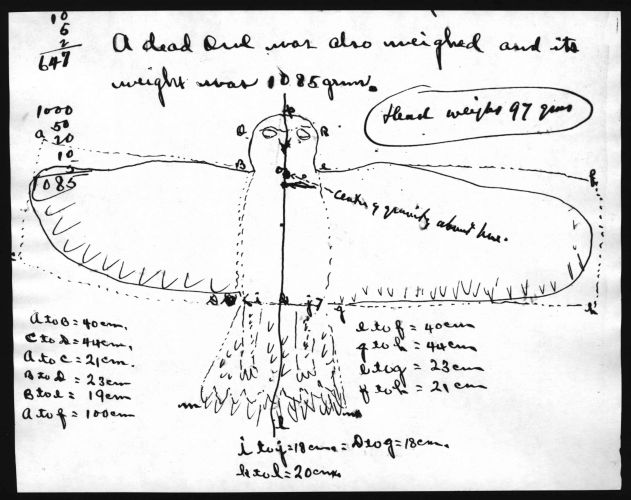 10
5
2
647
A dead Owl was also weighed and its
weight was 1085 grm.
Head weighs 97 gms
1000
50
20
10
5
1085
a
p
Q
R
B
e
f
center of gravity about here.
D
i
k
j
g
h
m
l
A to B = 40 cm.
C to D = 44 cm,
A to C = 21 cm.
B to D = 23 cm
B to e = 19 cm
A to f = 100 cm
e to f = 40 cm
g to h = 44 cm
e to g = 23 cm
f to h = 21 cm
i to j = 18 cm. = D to g = 18 cm.
k to l = 20 cm.